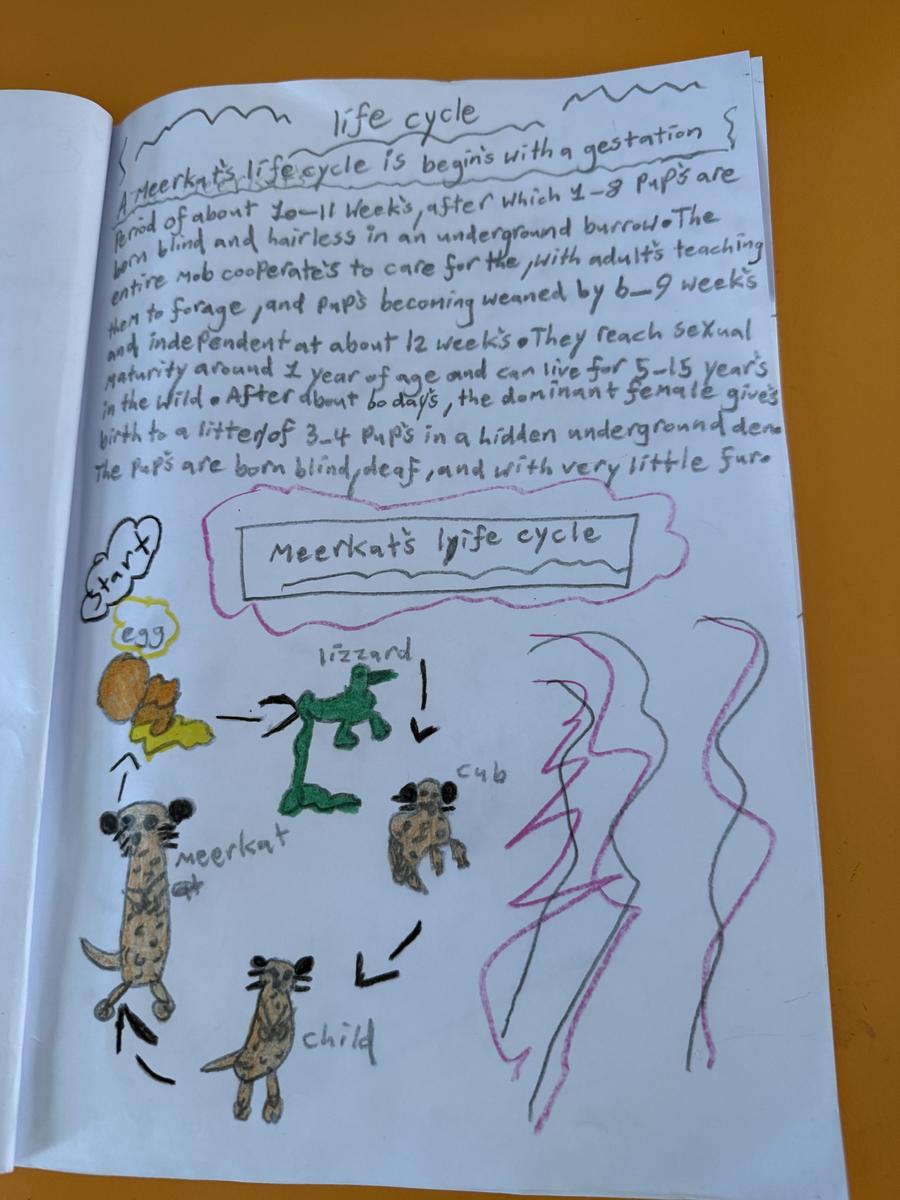 life cycle
A Meerkat's life cycle is begin's with a gestation
Period of about 10-11 Week's, after which 1-8 Pup's are
born blind and hairless in an underground burrow. The
entire mob cooperate's to care for the, with adult's teaching
them to forage, and pup's becoming weaned by 6-9 week's
and independent at about 12 week's. They reach sexual
maturity around 1 year of age and can live for 5-15 year's
in the wild. After about 60 day's, the dominant female give's
birth to a litter of 3-4 Pup's in a hidden underground den.
The Pup's are born blind, deaf, and with very little fur.
Meerkat's life cycle
Start
egg
lizzard
cub
Meerkat
child